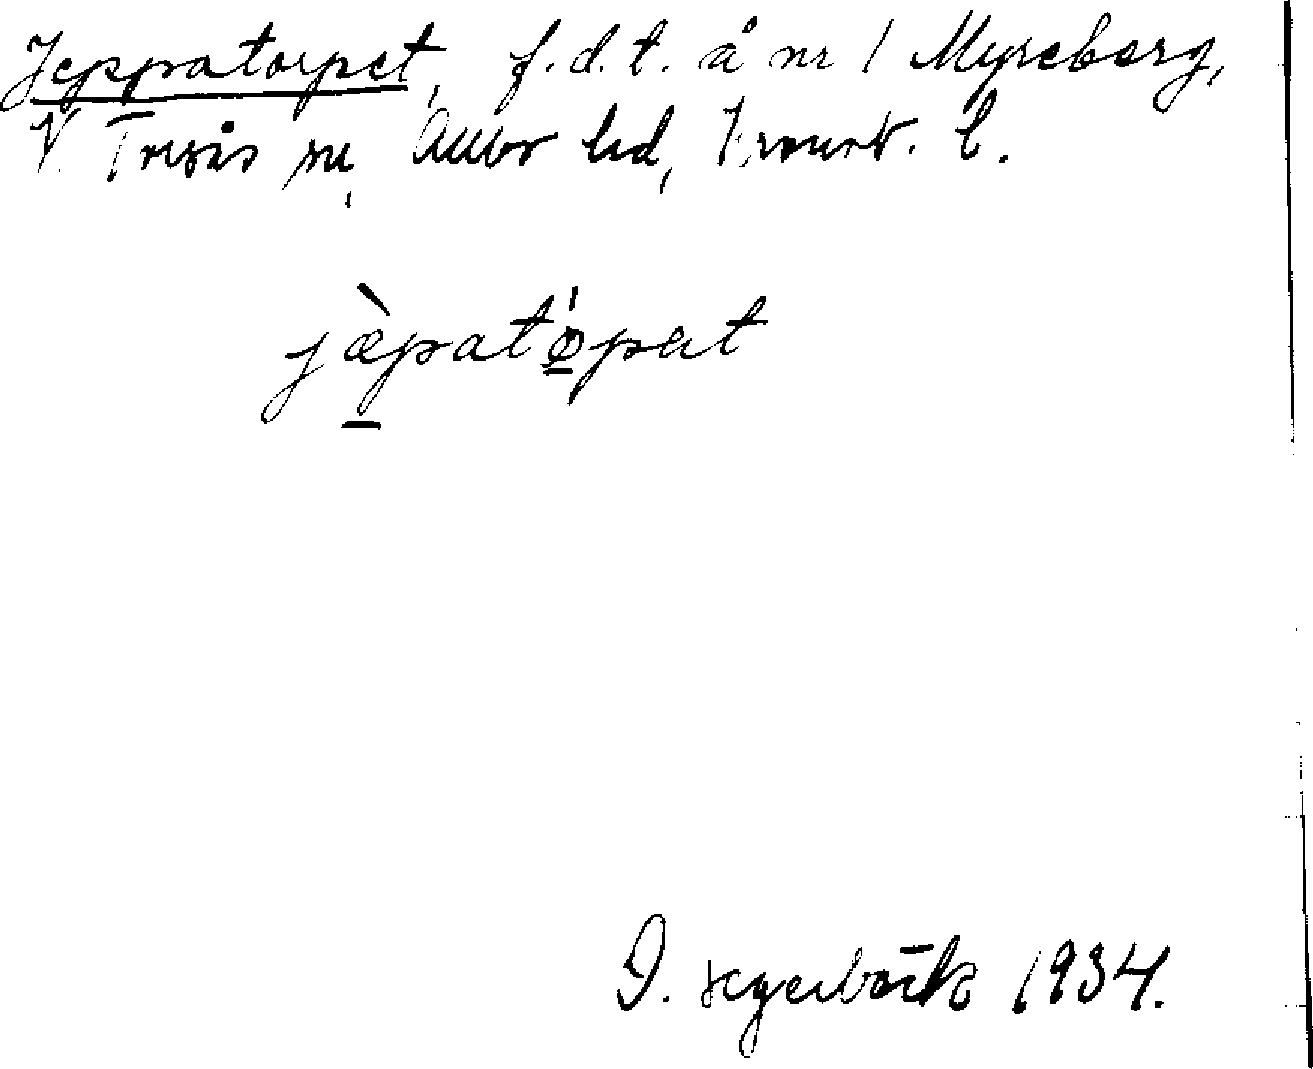 Jeppatorpet, f.d.t. å nr 1 Myreberg,
V. Torsås sn, Allbo hd, Kronob. l.
jæpatøpat
I. Segerbäck 1934.